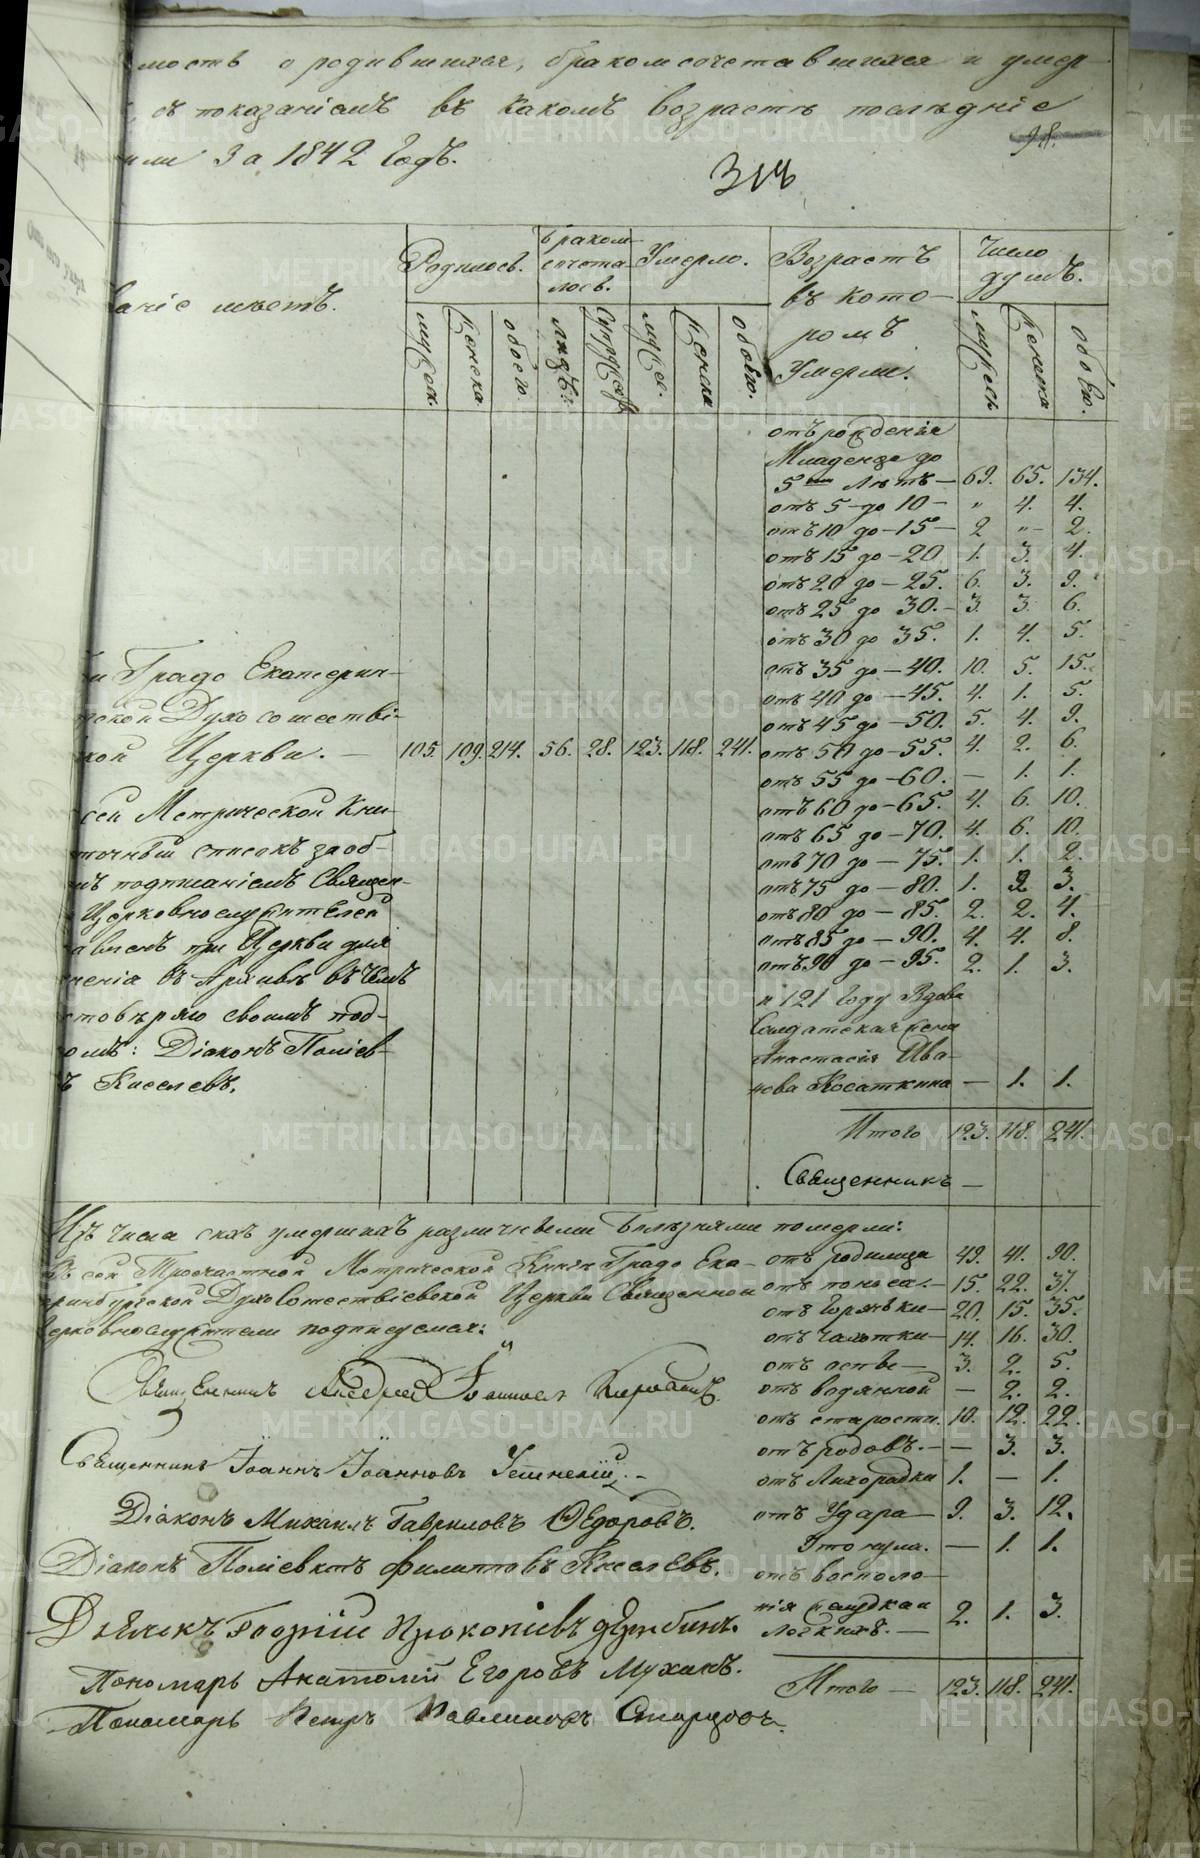 мость о родившихся, бракомсочетавшихся и умер
, съ показаніемъ въ какомъ возрастѣ послѣдніе
или За 1842 Годъ.
98.
314
ваніе мѣстъ.
Родилось.
Бракомъ
сочета
лось.
Умерло.
Возрастъ
въ кото
ромъ
Умерли.
Число
душъ.
мужск.
женска
обоего.
лицъ
Супружес
мужес.
женска
обоего.
мужеск
женска
обоего.
отъ рожденія
Младенца до
5 ти лѣтъ — 69. 65. 134.
отъ 5 до 10 — " 4. 4.
отъ 10 до — 15 — 2 " — 2.
отъ 15 до — 20. 1. 3. 4.
отъ 20 до — 25. 6. 3. 9.
отъ 25 до 30. — 3. 3. 6.
отъ 30 до 35. 1. 4. 5.
отъ 35 до — 40. 10. 5. 15.
отъ 40 до — 45. 4. 1. 5.
отъ 45 до — 50. 5. 4. 9.
отъ 50 до — 55. 4. 2. 6.
отъ 55 до — 60. — 1. 1.
отъ 60 до — 65. 4. 6. 10.
отъ 65 до — 70. 4. 6. 10.
отъ 70 до — 75. 1. 1. 2.
отъ 75 до — 80. 1. 2 3.
отъ 80 до — 85. 2. 2. 4.
отъ 85 до — 90. 4. 4. 8.
отъ 90 до — 95. 2. 1. 3.
и 121 Году Вдова
Солдатская жена
Анастасія Ива-
нова Косаткина — 1. 1.
Итого 123. 118. 241.
Священникъ —
Градо Екатерин-
ской Духосошестві-
кой Церкви. — 105. 109. 214. 56. 28. 123. 118. 241.
сей Метрической Кни-
точный списокъ за об-
мъ подписаніемъ Священ-
Церковнослужителей
авленъ при Церкви для
ненія въ Архивѣ въ чемъ
стовѣряю своимъ под-
омъ: Діаконъ Поліев-
ъ Киселевъ.
Изъ числа сихъ умершихъ различными Болѣзнями померли:
Въ сей Троечастной Метрической Книгѣ Градо Ека-
ринбургской ДухоСошествіевской Церкви Священно
церковнослужители подписуемся:
Священникъ Андрей Іоанновъ
Священникъ Іоаннъ Іоанновъ
Діаконъ Михаилъ Гавриловъ Ѳедоровъ.
Діаконъ Поліевктъ Филипповъ Киселевъ.
Дьячекъ Георгій Прокопіевъ Дерябинъ.
Пономарь Анатолій Егоровъ Мухинъ.
Пономарь Петръ Павлиновъ Старцовъ.
отъ родимца 49. 41. 90.
отъ поноса. — 15. 22. 37.
отъ Горячки — 20. 15. 35.
отъ Чахотки — 14. 16. 30.
отъ оспы — 3. 2. 5.
отъ водяной — 2. 2.
отъ старости. 10. 12. 22.
отъ родовъ. — — 3. 3.
отъ Лихорадки 1. — 1.
отъ Удара — 9. 3. 12.
Утонула. — — 1. 1.
отъ восполе-
нія
2. 1. 3.
Итого — 123. 118. 241.
METRIKI.GASO-URAL.RU